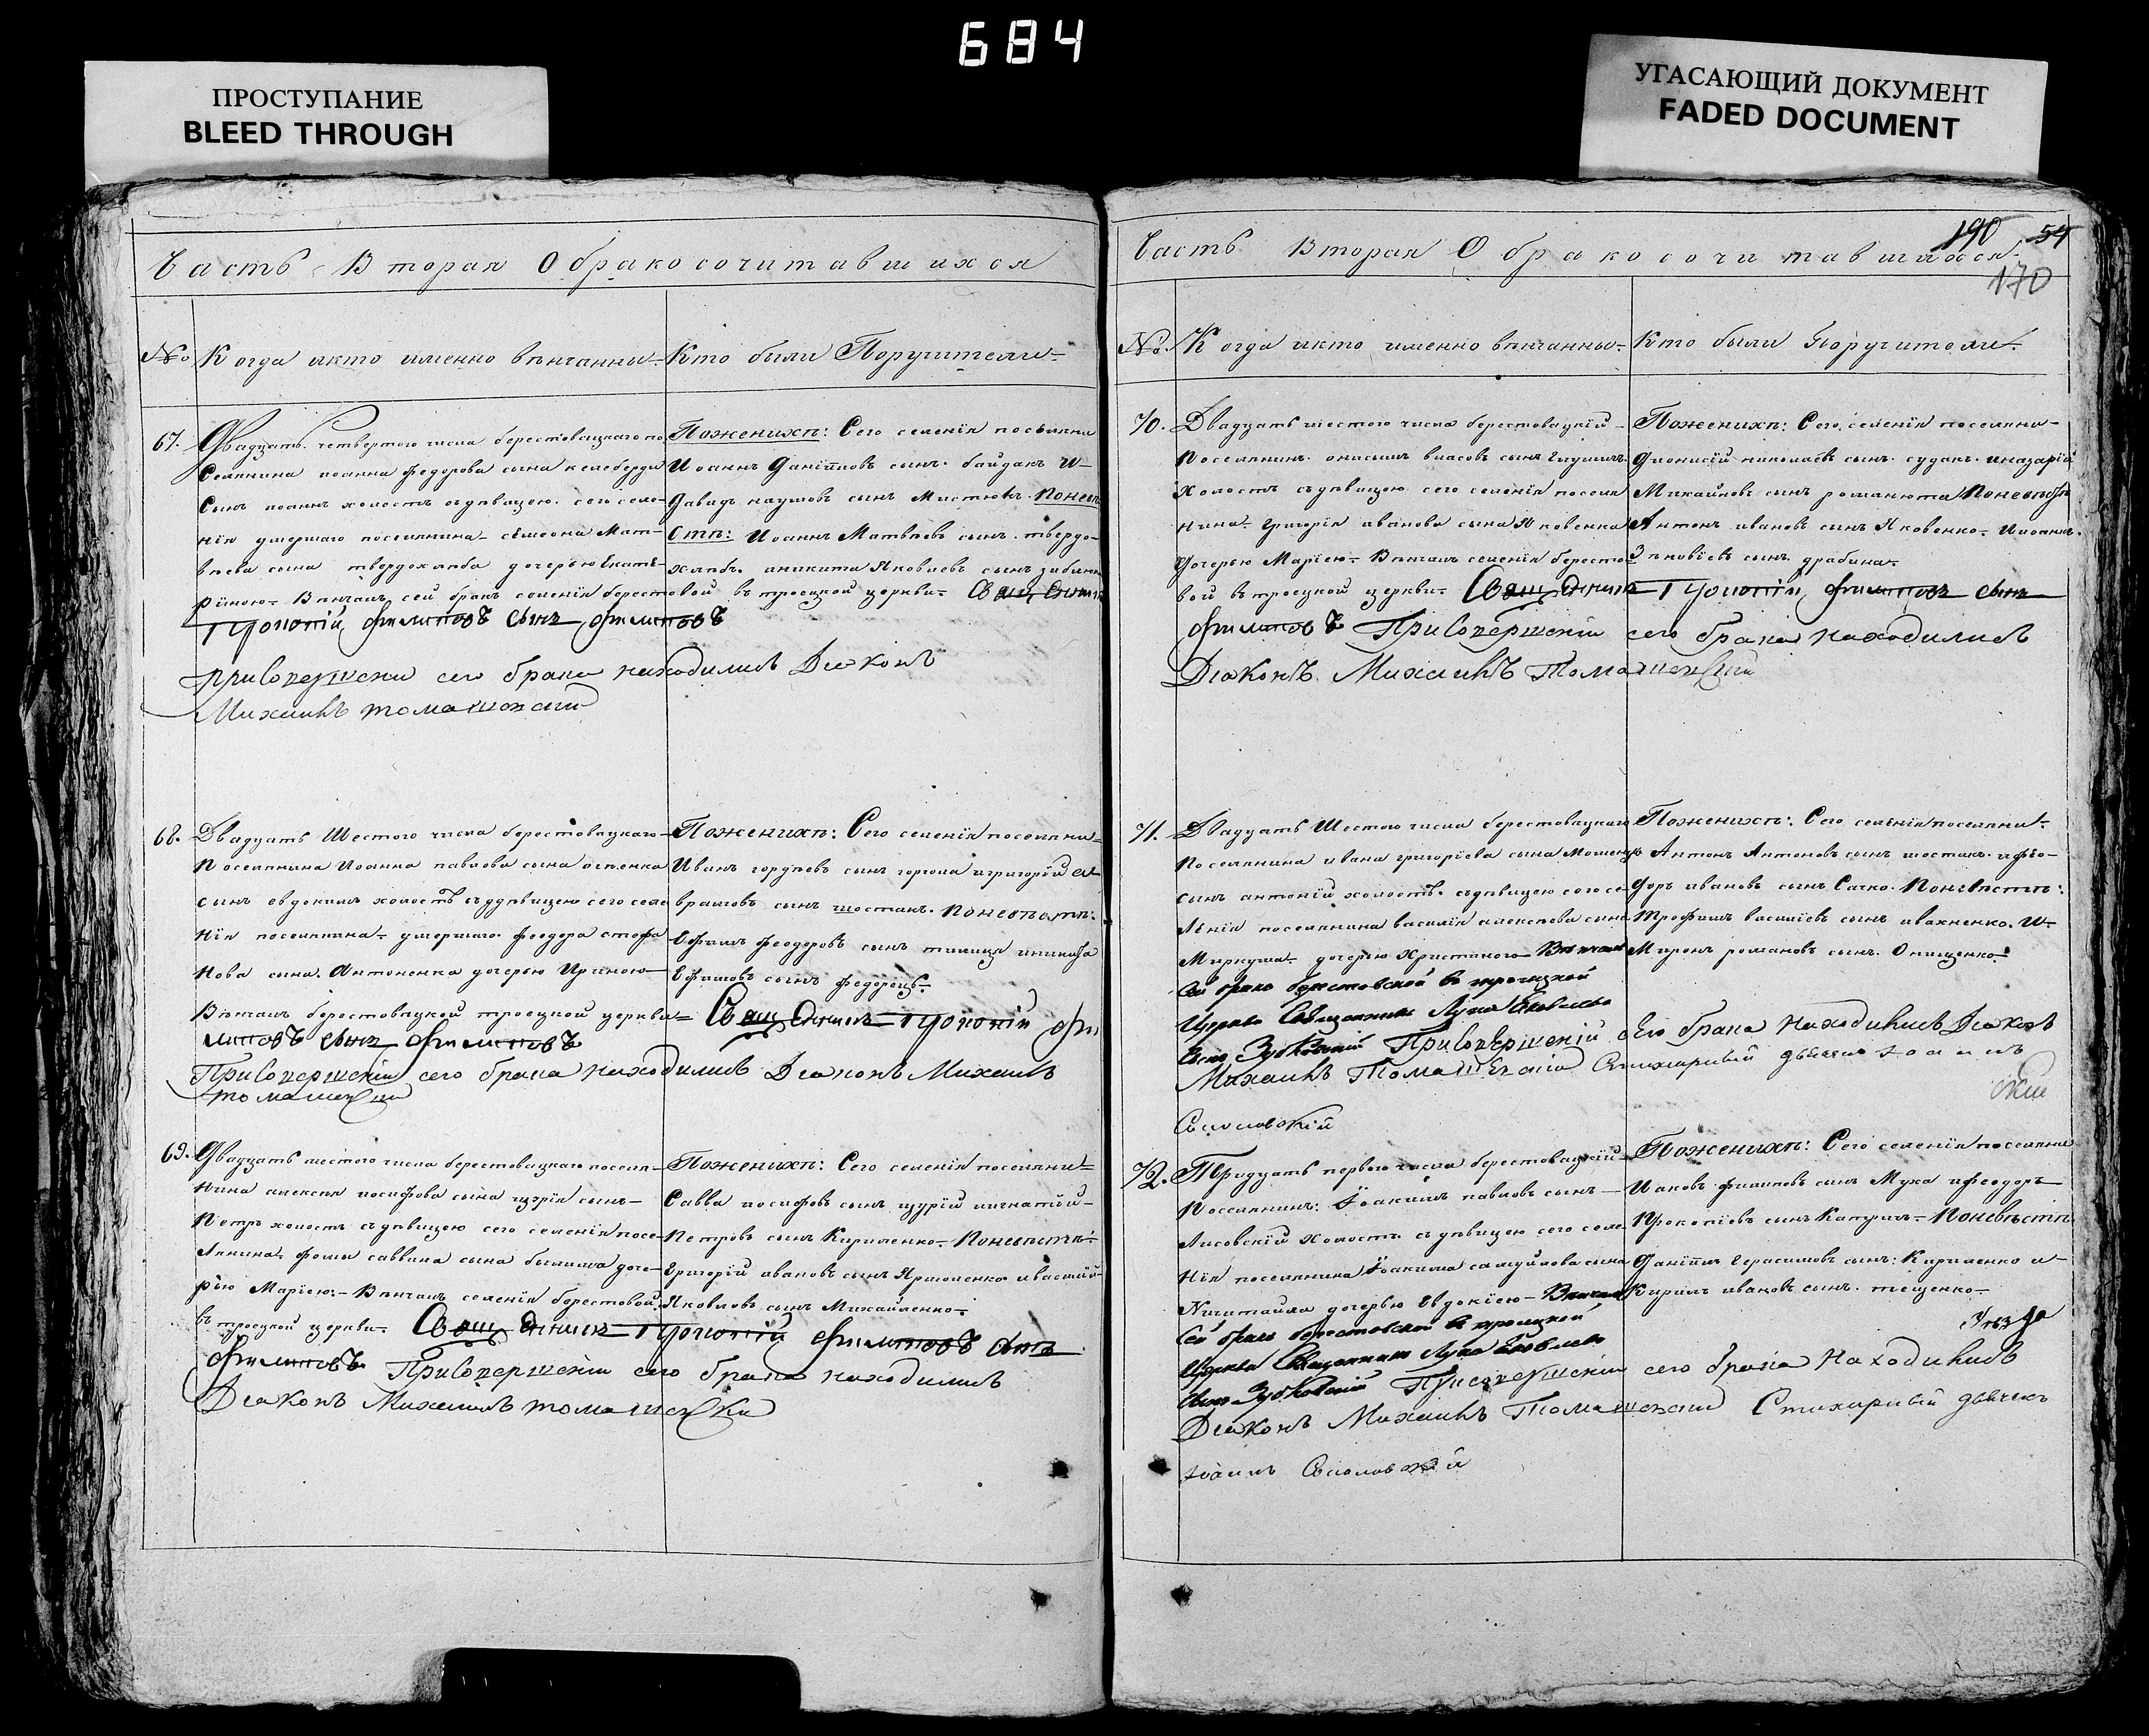 684
ПРОСТУПАНИЕ
BLEED THROUGH
УГАСАЮЩИЙ ДОКУМЕНТ
FADED DOCUMENT
Часть Вторая О бракосочитавшихся
№ Когда икто именно вѣнчанны Кто были Поручители
67. Двадцать четвертого числа берестовацкаго по
селянина иоанна федорова сына келеберди
сынъ иоаннъ холостъ здѣвицею сего селе-
нія умершаго поселянина семеона Мат-
вѣева сына твердохлѣба дочерью Екате-
риною Вѣнчалъ сей бракъ селенія берестовой въ троецкой церкви Свящ
Филиповъ сынъ Филиповъ
при совершени сего брака находился Діаконъ
Михаилъ томашевский
Поженихѣ: Сего селенія поселяни
Иоаннъ Даніиловъ сынъ байдакъ и
Давидъ наумовъ сынъ Понев
стѣ: Иоаннъ Матвѣевъ сынъ твердо-
хлѣбъ аникита Яковлевъ сынъ
68. Двадцать Шестого числа берестовацкаго
поселянина Иоанна павлова сына
сынъ евдокимъ холостъ здѣвицею сего селе
нія поселянина умершаго феодора стефа
нова сына Антоненка дочерью Ириною
Вѣнчалъ берестовацкой троецкой церкви Свящ
липовъ сынъ Филиповъ
При совершеніи сего брака находился Діаконъ Михаилъ
томашевский
Поженихѣ: Сего селенія поселяни
Иванъ сынъ игригорій ав
врамовъ сынъ шостакъ Поневѣстѣ:
Ефимъ феодоровъ сынъ
Ефимовъ сынъ федорецъ
69. Двадцать шестого числа берестовацкаго посел
нина алексея иосифова сына цурія сынъ
Петръ холостъ здѣвицею сего селенія посе
лянина фомы саввина сына доче
рью Маріею Вѣнчалъ селенія берестовой
въ троецкой церкви Свящ Филиповъ сынъ
Филиповъ При совершеніи сего брака находился
Діаконъ Михаилъ томашевски
Поженихѣ: Сего селенія поселяни
Савва иосифовъ сынъ цурій
Петровъ сынъ Кириленко Поневѣстѣ:
Григорій ивановъ сынъ Ярмоленко ивасилій
Яковлевъ сынъ Михайленко
Часть Вторая О бракосочитавшихся
190 54
170
№ Когда икто именно вѣнчанны Кто были Поручители
70. Двадцать шестого числа берестовацкій
Поселянинъ онисимъ власовъ сынъ
холостъ здѣвицею сего селенія поселя
нина Григорія иванова сына Яковенка
дочерью Маріею Вѣнчалъ селенія бересто
вой въ троецкой церкви Свящ Филиповъ сынъ
Филиповъ При Совершеніи сего брака находился
Діаконъ Михаилъ Томашевский
Поженихѣ: Сего селенія поселяни
Дионисій николаевъ сынъ судакъ иназарій
Михайловъ сынъ романюта Поневѣстѣ
Антонъ ивановъ сынъ Яковенко Ииоаннъ
Зѣновіевъ сынъ драбина
71. Двадцать Шестого числа берестовацкаго
Поселянина ивана григоріева сына
сынъ антоній холостъ здѣвицею сего се
ленія поселянина василія алексеева сына
Миркуша дочерью христиною Вѣнчалъ
сей бракъ берестовской въ троицкой
церкви Священникъ Лука Яковлевъ
сынъ Зубковский При Совершеніи сего брака находился Діаконъ
Михаилъ Томашевский Стихарный дьячокъ Иоаннъ
Соколовский
Поженихѣ: Сего селенія поселяни
Антонъ Антоновъ сынъ шостакъ ифео
доръ ивановъ сынъ Сачко Поневѣстѣ:
Трофимъ василіевъ сынъ ивахненко и
Миронъ романовъ сынъ Онищенко
72. Тридцать первого числа берестовацкій
Поселянинъ Іоакимъ павловъ сынъ
Лисовскій холостъ здѣвицею сего селе
нія поселянина Іоакима самуйлова сына
Ничитайла дочерью Евдокіею Вѣнчалъ
сей бракъ берестовской въ троицкой
церкви Священникъ Лука Яковлевъ
сынъ Зубковский При совершеніи сего брака находился
Діаконъ Михаилъ Томашевский Стихарный дьячокъ
Иоаннъ Соколовский
Поженихѣ: Сего селенія поселяни
Иаковъ филиповъ сынъ Муха ифеодоръ
Прокопіевъ сынъ Поневѣстѣ
Даніилъ Герасимовъ сынъ Кириленко и
Кирилъ ивановъ сынъ тещенко